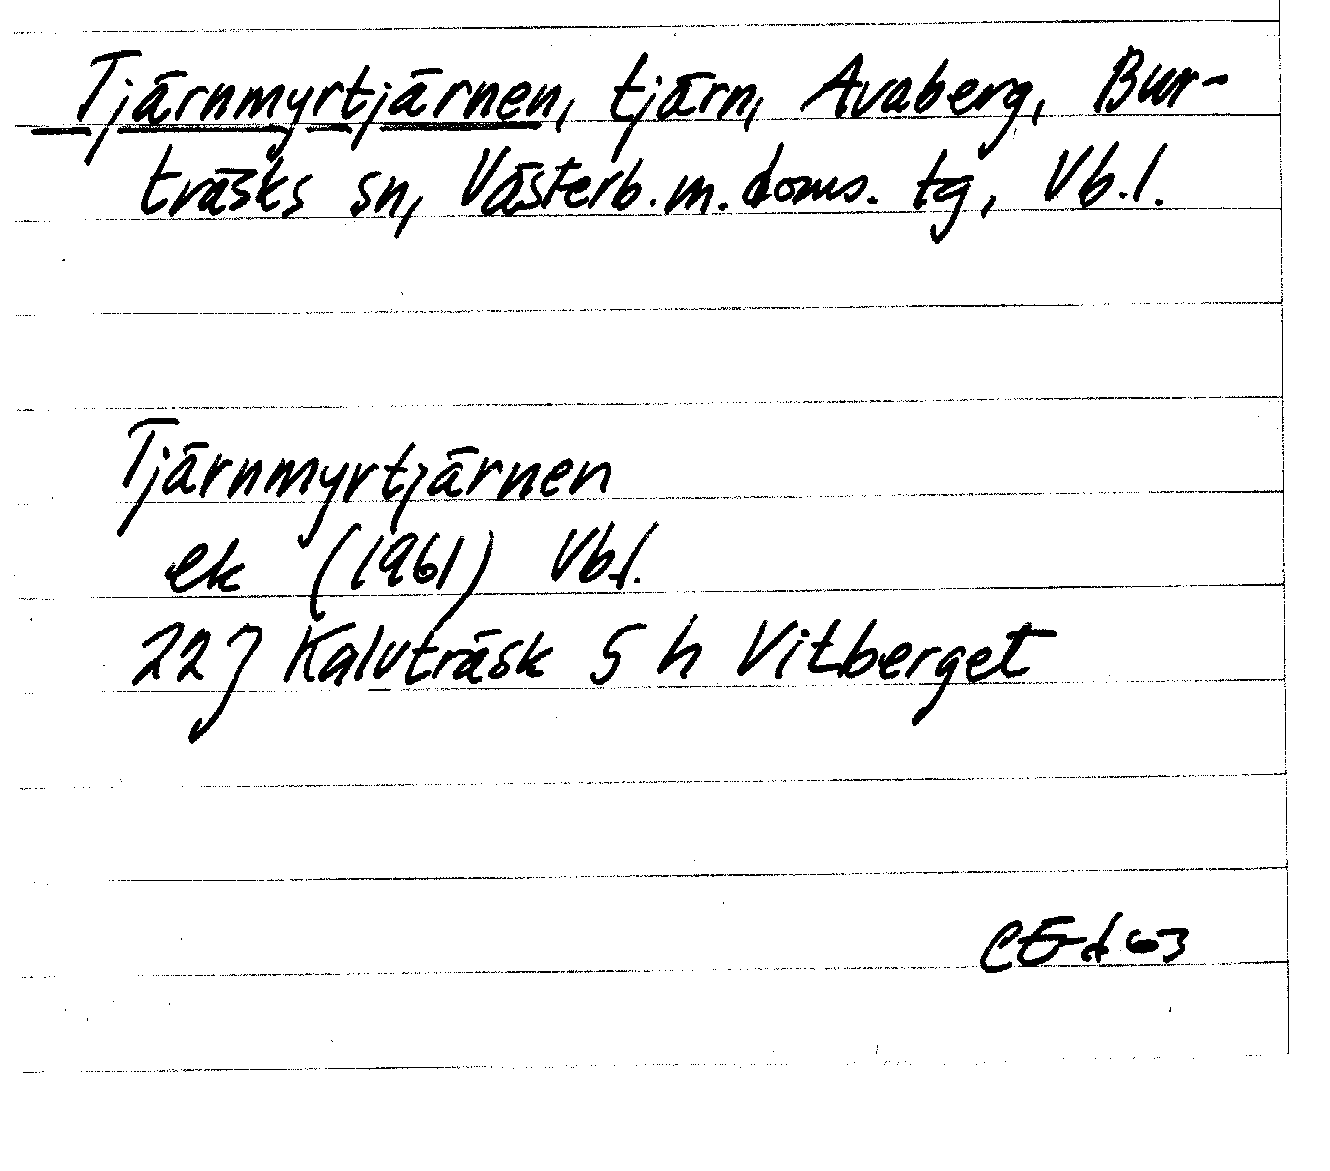 Tjärnmyrtjärnen, tjärn, Avaberg, Bur-
träsks sn, Västerb. m. doms. tg, Vb.l.
Tjärnmyrtjärnen
ek (1961) Vb.l.
22J Kalvträsk 5 h Vitberget